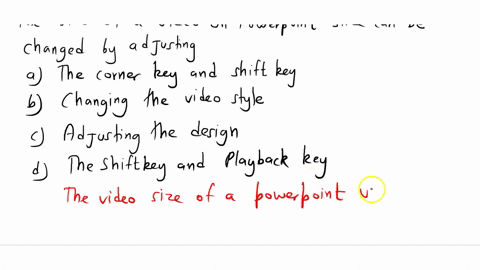 The size of a video on Powerpoint size can be
changed by adjusting
a) The corner key and shift key
b) Changing the video style
c) Adjusting the design
d) The Shift key and Playback key
The video size of a powerpoint v